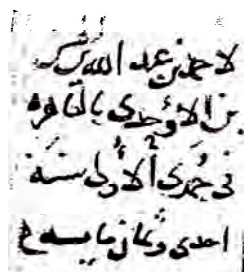 لاحمد بن عبد الله بن
بن الاوحدى بالقاهرة
فى جمدى الأولى سنة
احدى وثمان مايه